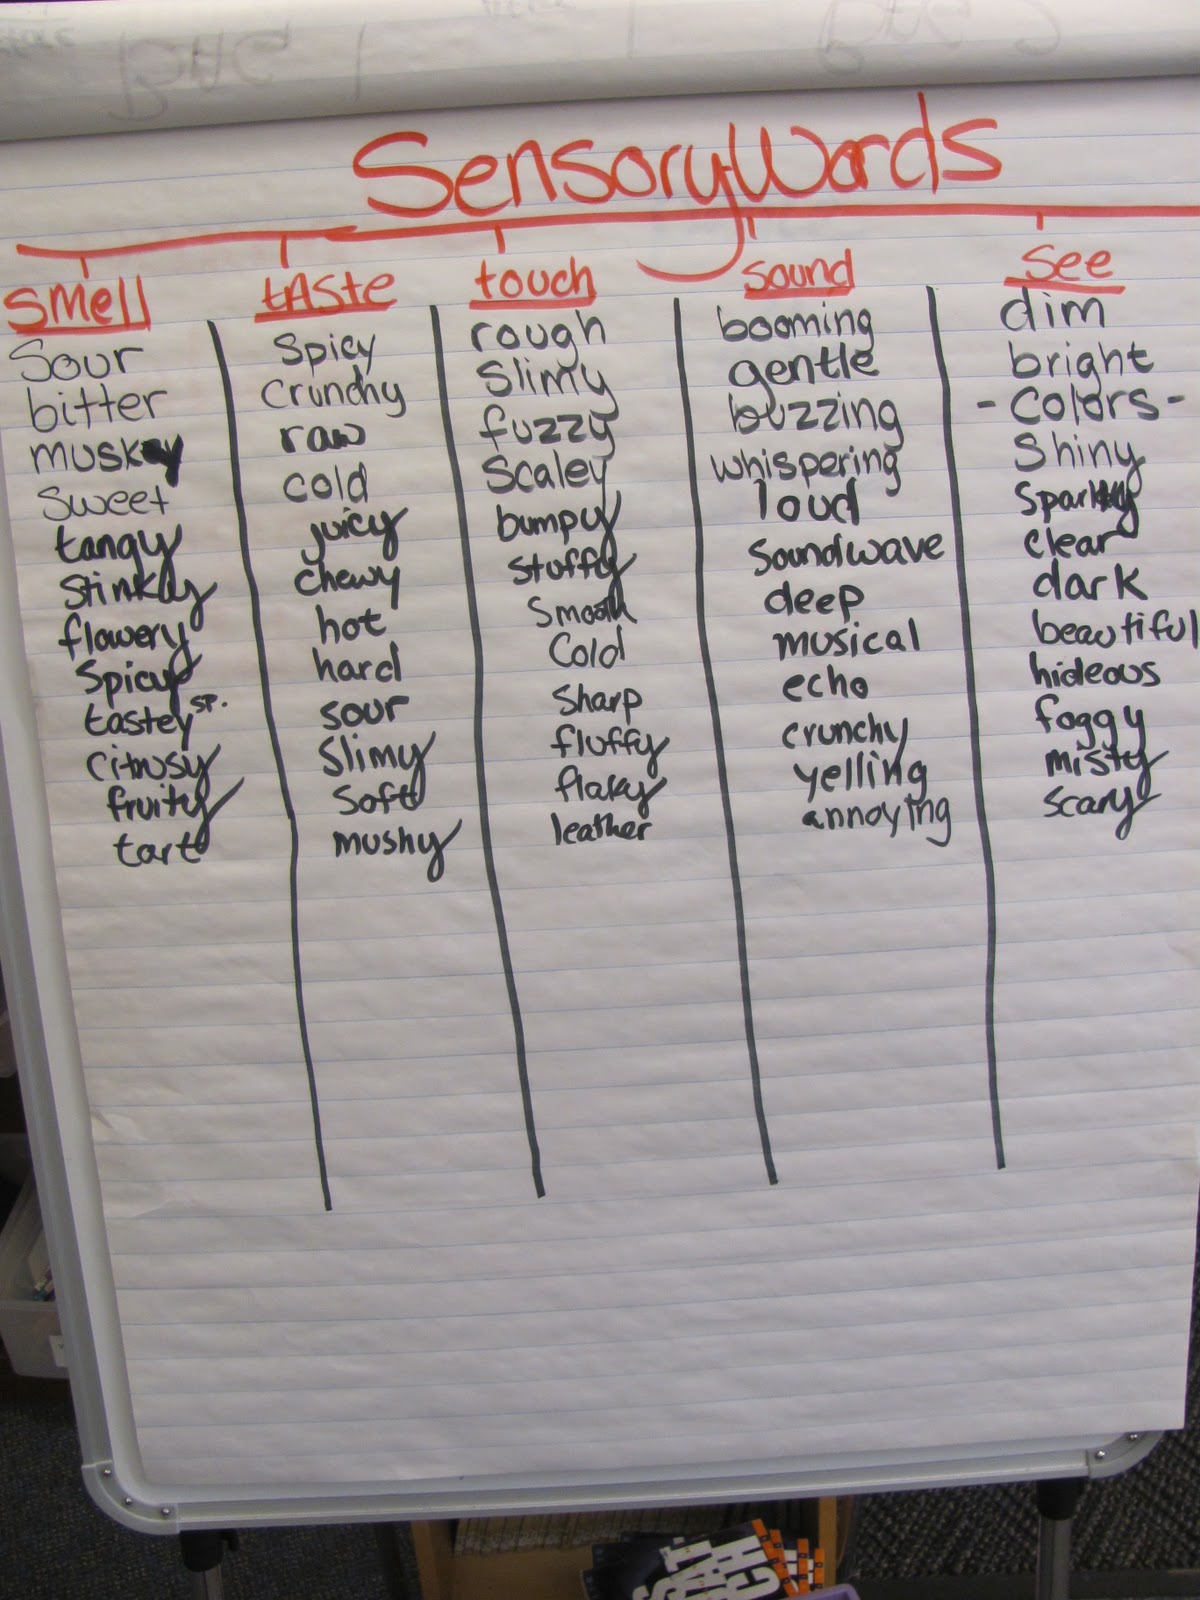 Sensory Words
smell
sour
bitter
muskey
sweet
tangy
stinky
flowery
spicy
tastey sp.
citrusy
fruity
tart
taste
spicy
crunchy
raw
cold
juicy
chewy
hot
hard
sour
slimy
soft
mushy
touch
rough
slimy
fuzzy
scaley
bumpy
stuffy
smooth
cold
sharp
fluffy
flaky
leather
sound
booming
gentle
buzzing
whispering
loud
soundwave
deep
musical
echo
crunchy
yelling
annoying
see
dim
bright
- colors -
shiny
sparkly
clear
dark
beautiful
hideous
foggy
misty
scary